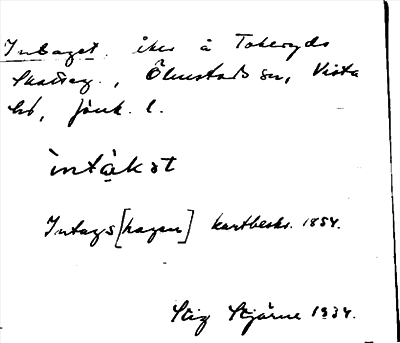 Intaget åker å Tokeryds
Skatteg., Ölmstads sn, Vista
hd, Jönk. l.
ìntàkət
Intags[hagen] kartbeskr. 1854.
Stig Stjärne 1934.